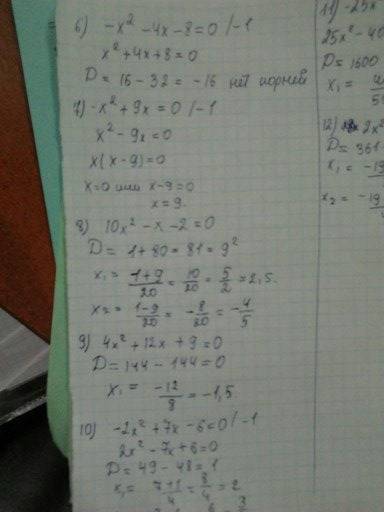 6) -x² - 4x - 8 = 0 /-1
x² + 4x + 8 = 0
D = 16 - 32 = -16 нет корней
7) -x² + 9x = 0 /-1
x² - 9x = 0
x(x - 9) = 0
x=0 или x-9=0
x = 9.
8) 10x² - x - 2 = 0
D = 1 + 80 = 81 = 9²
x₁ = 1+9/20 = 10/20 = 5/2 = 2,5.
x₂ = 1-9/20 = -8/20 = -4/5
9) 4x² + 12x + 9 = 0
D = 144 - 144 = 0
x₁ = -12/8 = -1,5.
10) -2x² + 7x - 6 = 0 /-1
2x² - 7x + 6 = 0
D = 49 - 48 = 1
x₁ = 7+1/4 = 8/4 = 2
11) -25x
25x² - 40
D = 1600
x₁ =
12) 2x²
D = 361
x₁ = -19
x₂ = -19